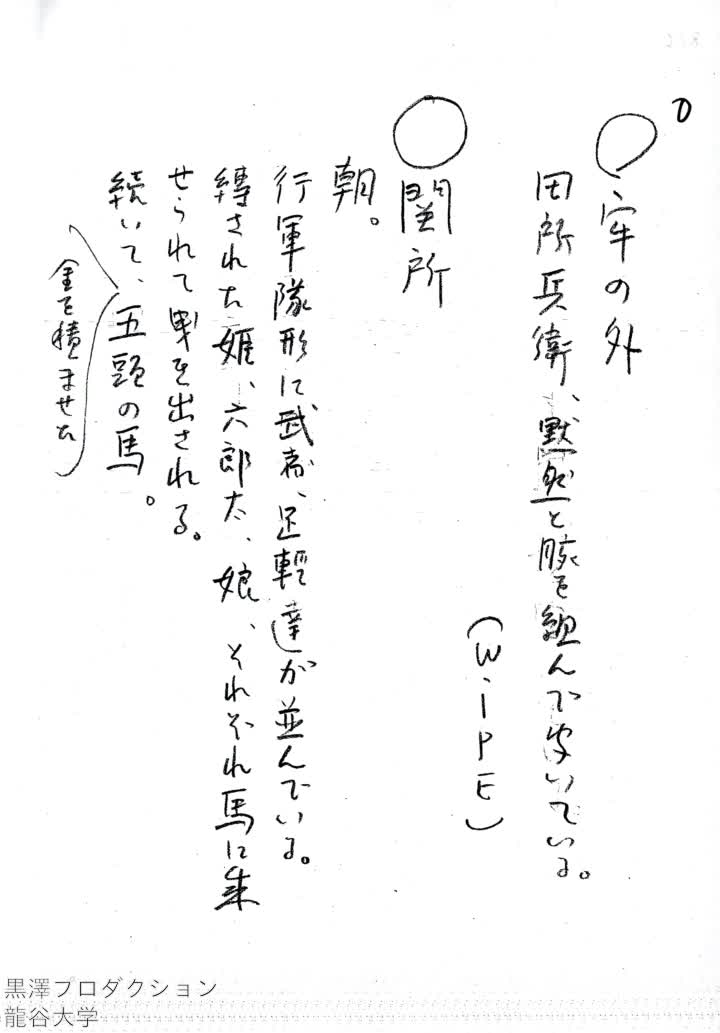 ○牢の外
田所兵衛、黙然と腕を組んで聞いている。
(WiPE)
○関所
朝。
行軍隊形に武者、足軽達が並んでいる。
縛された姫、六郎太、娘、それぞれ馬に乗
せられて曳き出される。
続いて、五頭の馬。
金を積ませた
黒澤プロダクション
龍谷大学